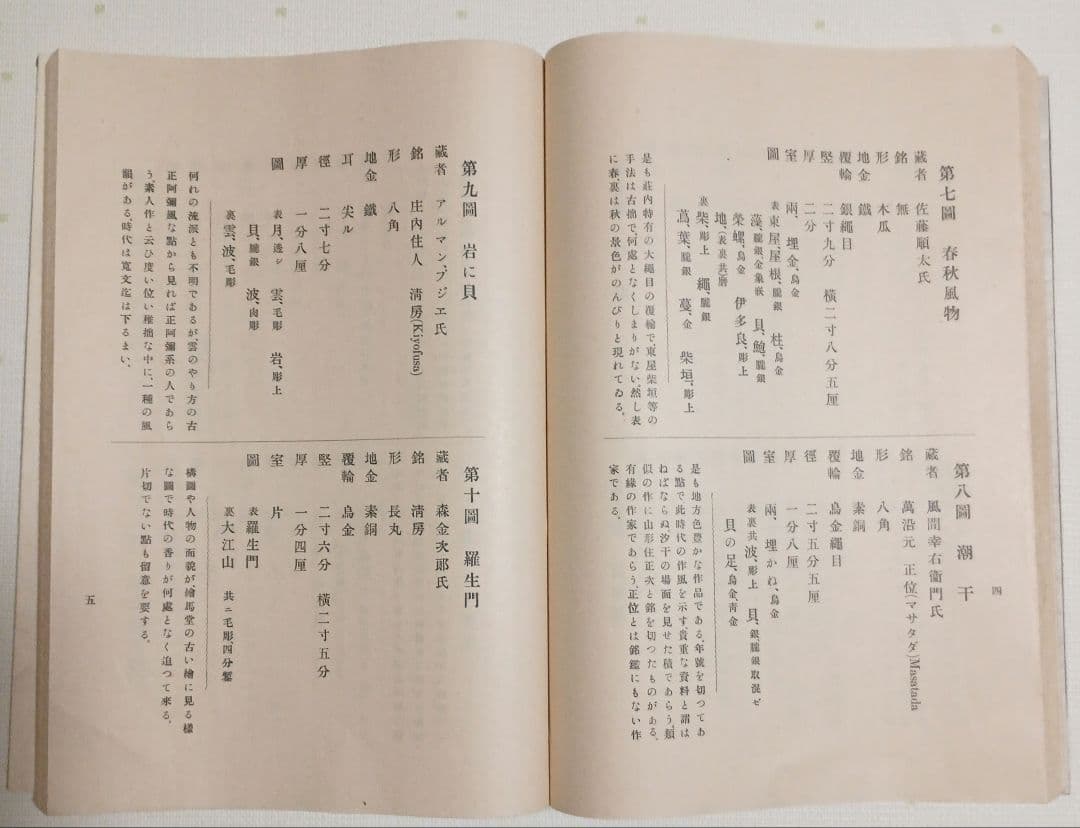 第七圖　春秋風物
藏者　佐藤順太氏
銘　無
形　木瓜
地金　鐵
覆輪　銀繩目
竪　二寸九分　橫二寸八分五厘
厚　二分
室　兩、埋金、烏金
圖　表　東屋、屋根、朧銀　柱、烏金
藻、朧銀、金象嵌　貝、鮑、朧銀
榮螺、烏金　伊多良、彫上
地、(表裏共)磨
裏　柴、彫上　繩、朧銀
蔦、葉、朧銀　蔓、金　柴垣、彫上
是も莊內特有の大繩目の覆輪で、東屋柴垣等の
手法は古拙で、何處となくしまりがない、然し表
に春、裏は秋の景色がのんびりと現れてゐる。
第八圖　潮干
藏者　風間幸右衞門氏
銘　萬治元　正位(マサタダ)Masatada
形　八角
地金　素銅
覆輪　烏金繩目
徑　二寸五分五厘
厚　一分八厘
室　兩、埋かね、烏金
圖　表裏共　波、彫上　貝、銀、朧銀取混ゼ
貝の足、烏金、靑金
是も地方色豐かな作品である、年號を切つてあ
る點で此時代の作風を示す、貴重な資料と謂は
ねばならぬ汐干の場面を見せた積であらう、類
似の作に山形住正次と銘を切つたものがある、
有緣の作家であらう、正位とは銘鑑にもない作
家である。
四
第九圖　岩に貝
藏者　アルマンブジエ氏
銘　庄內住人　淸房(Kiyofusa)
形　八角
地金　鐵
耳　尖ル
徑　二寸七分
厚　一分八厘
圖　表　月、透シ　雲、毛彫　岩、彫上
貝、朧銀　波、肉彫
裏　雲、波、毛彫
何れの流派とも不明であるが、雲のやり方の古
正阿彌風な點から見れば正阿彌系の人であら
う、素人作と云ひ度い位い稚拙な中に、一種の風
韻がある、時代は寬文迄は下るまい、
第十圖　羅生門
藏者　森金次郞氏
銘　淸房
形　長丸
地金　素銅
覆輪　烏金
竪　二寸六分　橫二寸五分
厚　一分四厘
室　片
圖　表　羅生門
裏　大江山　共ニ毛彫、四分鏨
構圖や人物の面貌が、繪馬堂の古い繪に見る樣
な圖で時代の香りが何處となく迫つて來る、
片切でない點も留意を要する。
五